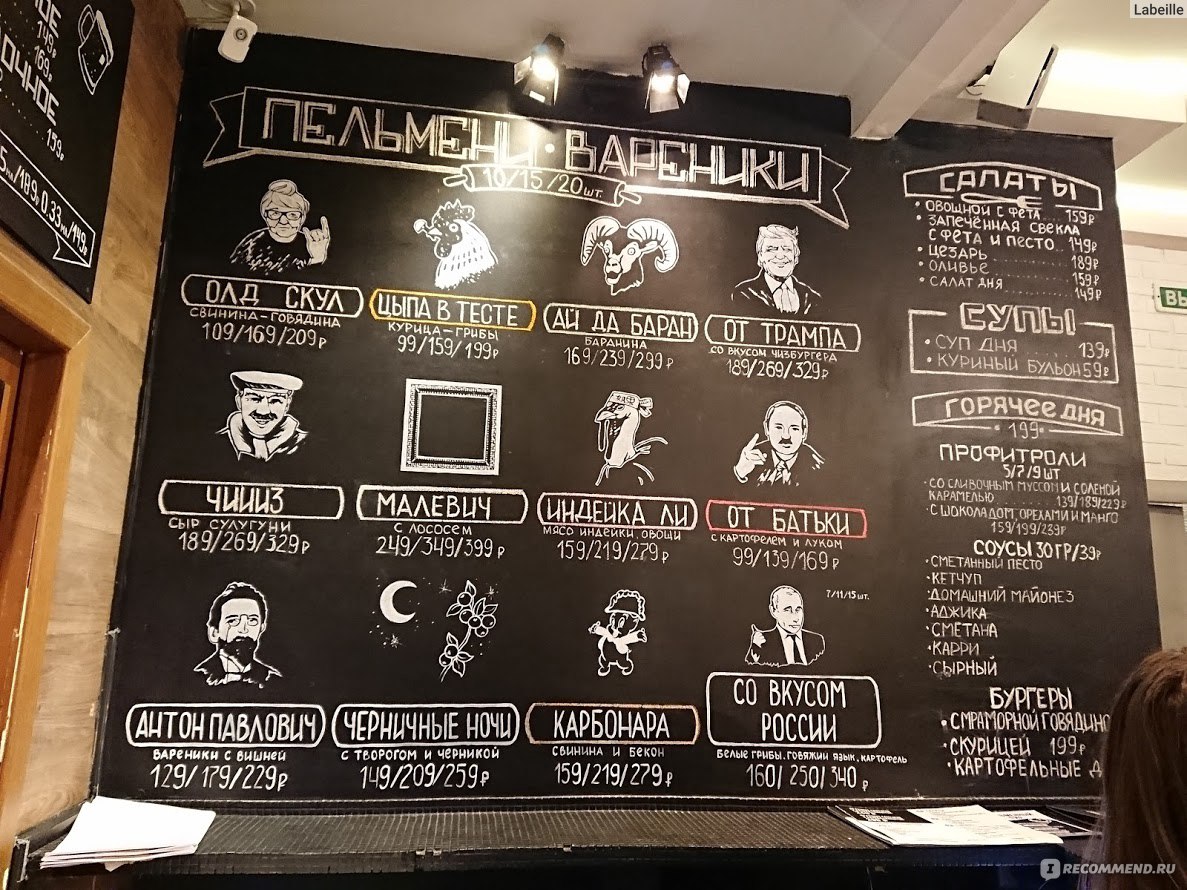 Labeille
149₽
169₽
139₽
0.33
ПЕЛЬМЕНИ · ВАРЕНИКИ
10/15/20 шт.
ОЛД СКУЛ
СВИНИНА-ГОВЯДИНА
109/169/209₽
ЦЫПА В ТЕСТЕ
КУРИЦА-ГРИБЫ
99/159/199₽
АЙ ДА БАРАН
БАРАНИНА
169/239/299₽
ОТ ТРАМПА
СО ВКУСОМ ЧИЗБУРГЕРА
189/269/329₽
ЧИИИЗ
СЫР СУЛУГУНИ
189/269/329₽
МАЛЕВИЧ
С ЛОСОСЕМ
249/349/399₽
ИНДЕЙКА ЛИ
МЯСО ИНДЕЙКИ, ОВОЩИ
159/219/279₽
ОТ БАТЬКИ
С КАРТОФЕЛЕМ И ЛУКОМ
99/139/169₽
АНТОН ПАВЛОВИЧ
ВАРЕНИКИ С ВИШНЕЙ
129/179/229₽
ЧЕРНИЧНЫЕ НОЧИ
С ТВОРОГОМ И ЧЕРНИКОЙ
149/209/259₽
КАРБОНАРА
СВИНИНА И БЕКОН
159/219/279₽
7/11/15 шт.
СО ВКУСОМ
РОССИИ
БЕЛЫЕ ГРИБЫ, ГОВЯЖИЙ ЯЗЫК, КАРТОФЕЛЬ
160/250/340₽
САЛАТЫ
• ОВОЩНОЙ С ФЕТА ... 159₽
• ЗАПЕЧЁННАЯ СВЕКЛА
С ФЕТА И ПЕСТО .. 149₽
• ЦЕЗАРЬ ........ 189₽
• ОЛИВЬЕ ........ 159₽
• САЛАТ ДНЯ ........ 149₽
СУПЫ
• СУП ДНЯ 139₽
• КУРИНЫЙ БУЛЬОН 59₽
ГОРЯЧЕЕ ДНЯ
• 199 •
ПРОФИТРОЛИ
5/7/9 ШТ
• СО СЛИВОЧНЫМ МУССОМ И СОЛЕНОЙ
КАРАМЕЛЬЮ ....... 139/189/229₽
• С ШОКОЛАДОМ, ОРЕХАМИ И МАНГО
159/199/239₽
СОУСЫ 30 ГР/39₽
• СМЕТАННЫЙ ПЕСТО
• КЕТЧУП
• ДОМАШНИЙ МАЙОНЕЗ
• АДЖИКА
• СМЕТАНА
• КАРРИ
• СЫРНЫЙ
БУРГЕРЫ
• С МРАМОРНОЙ ГОВЯДИНО
• С КУРИЦЕЙ 199₽
• КАРТОФЕЛЬНЫЕ Д
ВЫ
I RECOMMEND.RU